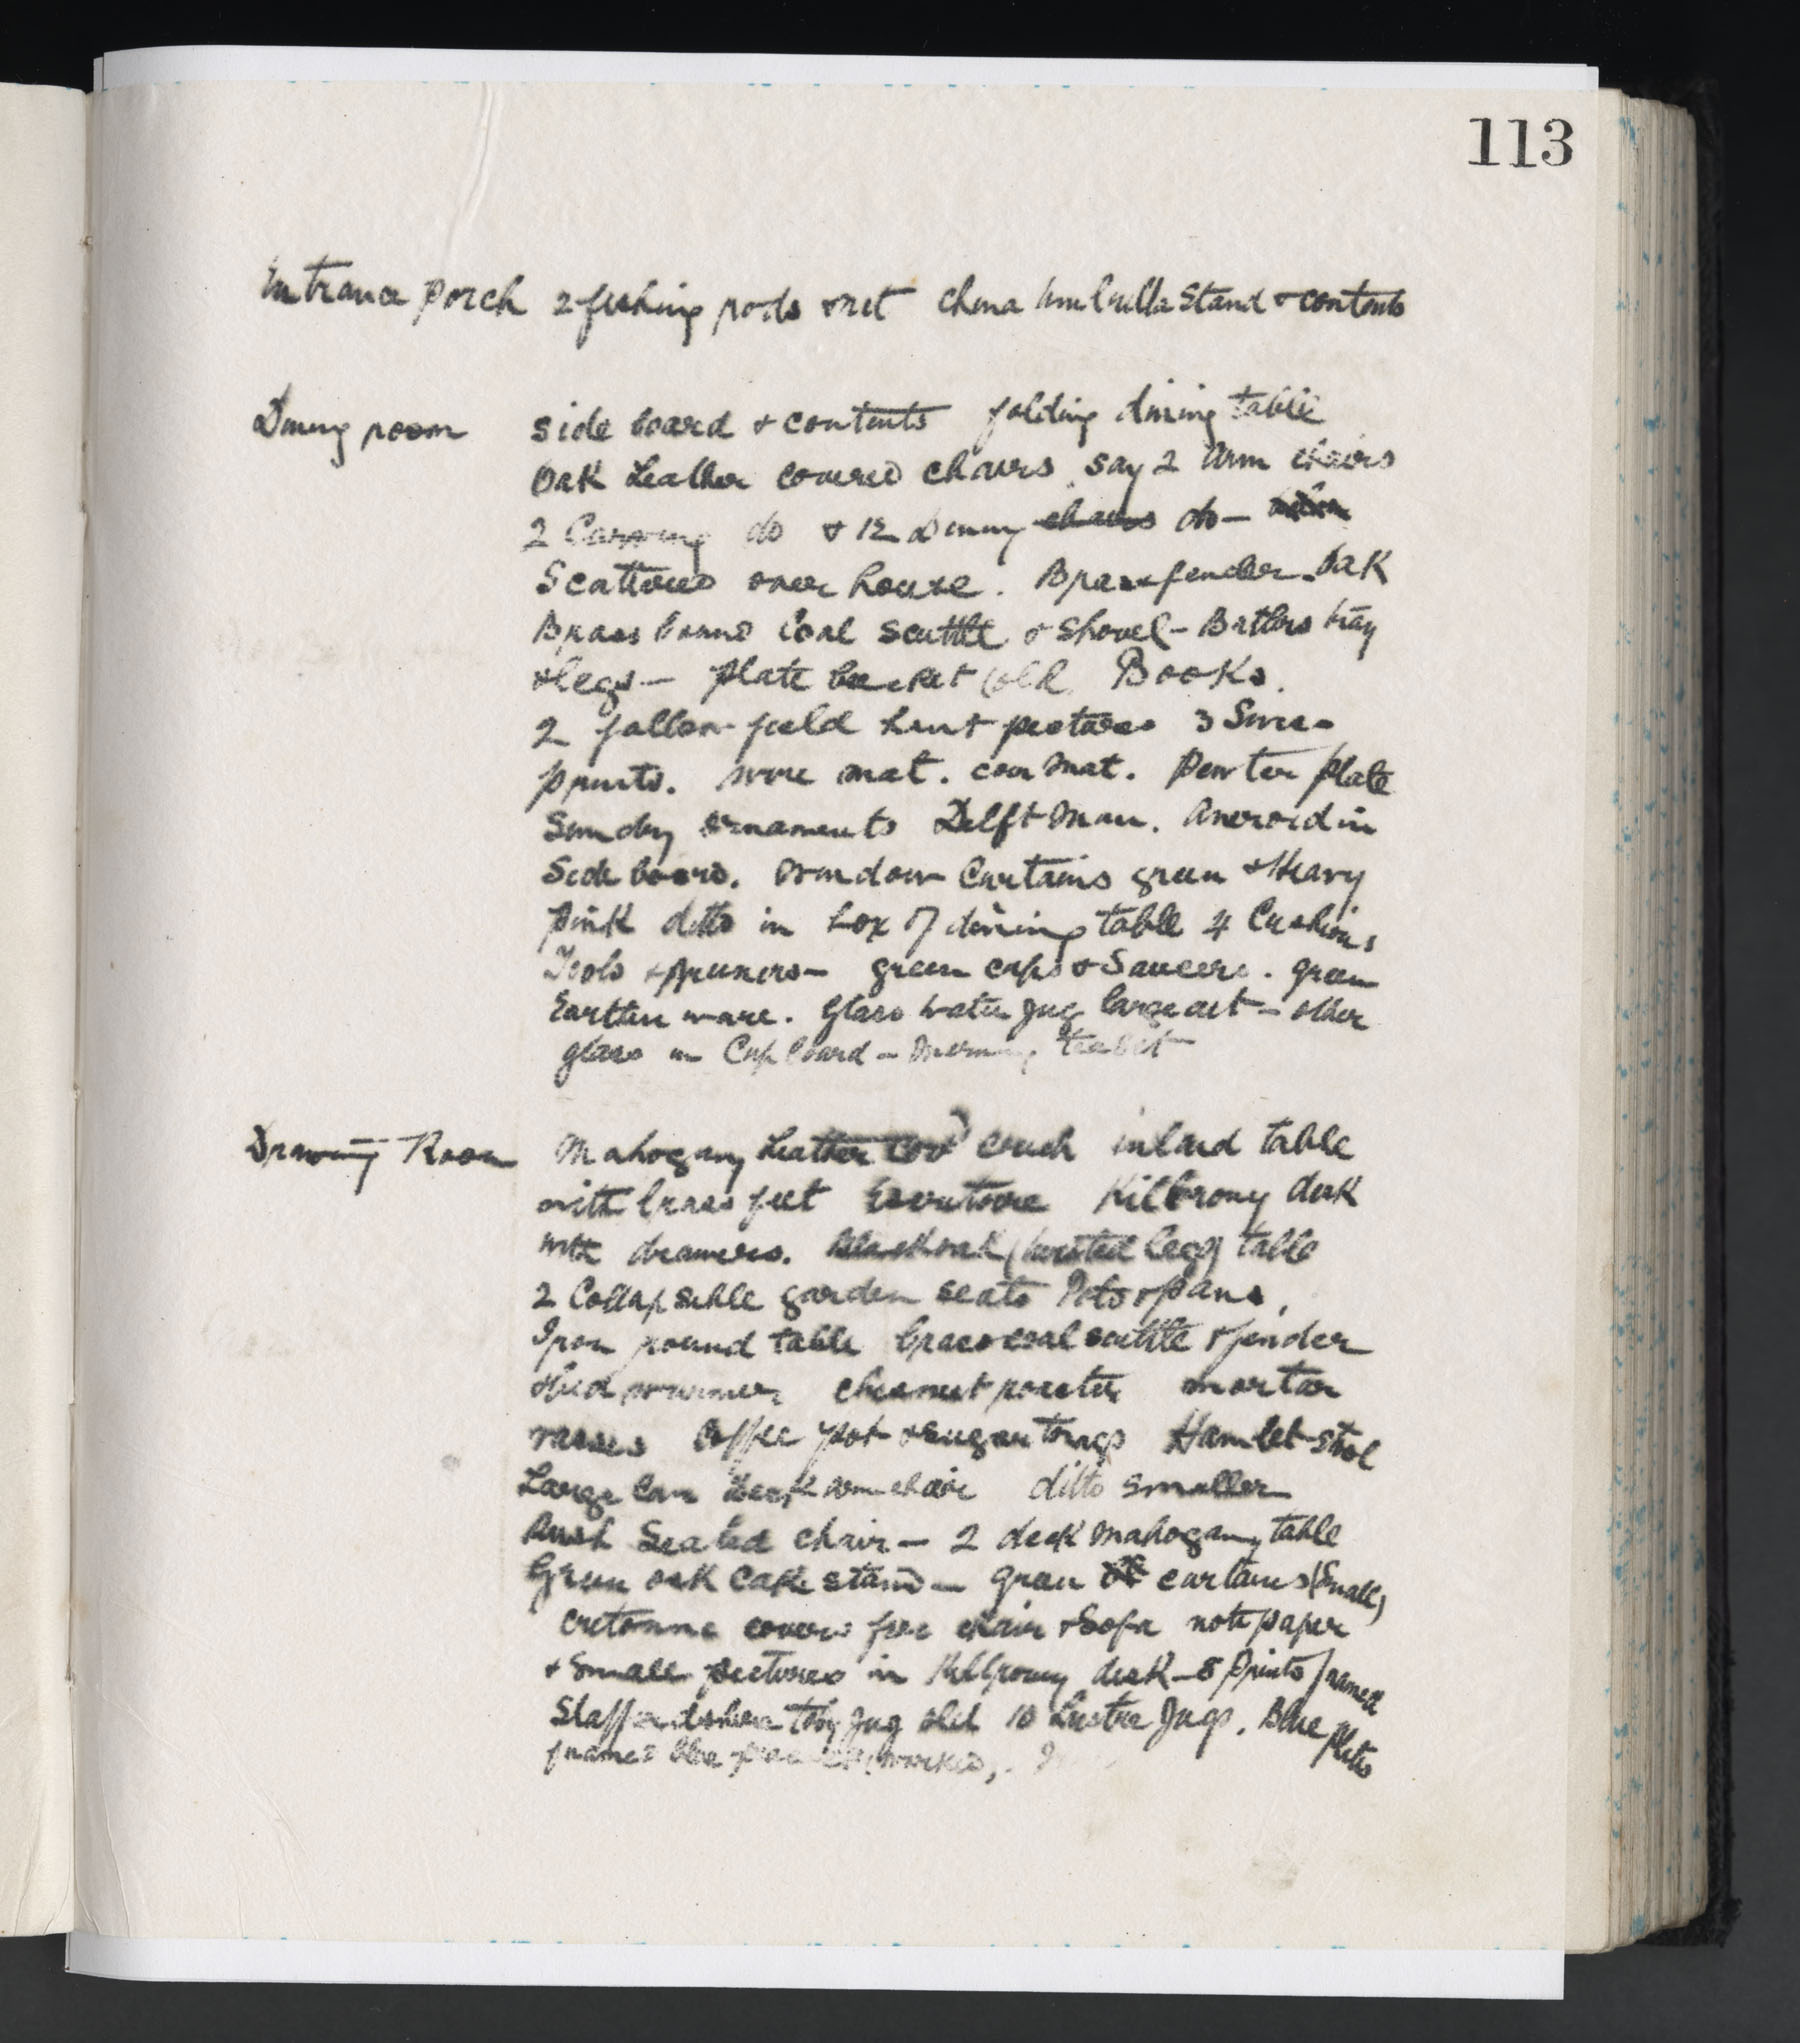 113
Entrance porch 2 fishing rods & net china Umbrella Stand & contents
Dining room side board & contents folding dining table
Oak Leather covered chairs say 2 Arm chairs
2 Carving do & 12 Dining chairs do —
Scattered over house. Brass fender. Oak
Brass bound Coal scuttle & shovel — Butlers tray
& legs — plate basket old Books.
2 fallow field hunt pictures 3 Swiss
prints. wire mat. coir mat. Pewter plate
Sundry ornaments Delft Man. Aneroid in
Side board. Window Curtains green & Heavy
pink ditto in box of dining table 4 Cushions
Tools & pruners — green cups & Saucers. green
Earthen ware. Glass water jug large art — other
glass in Cupboard — morning tea set
Drawing Room Mahogany Leather Cov'd couch inlaid table
with brass feet Escritoire Kilbrony desk
with drawers. Black oak (twisted legs) table
2 Collapsable garden seats Pots & pans,
Iron round table brass coal scuttle & fender
& bed warmer chesnut roaster mortar
vases Coffee pot & sugar tongs Hamlet stool
Large Cane back arm chair ditto smaller
Rush Seated chair — 2 deck mahogany table
Green oak Cake stand — green curtains (Small)
cretonne covers for chair & Sofa note paper
& Small pictures in Kilbrony desk — 8 Prints framed
Staffordshire toby jug old 10 Lustre Jugs. Blue plates
framed